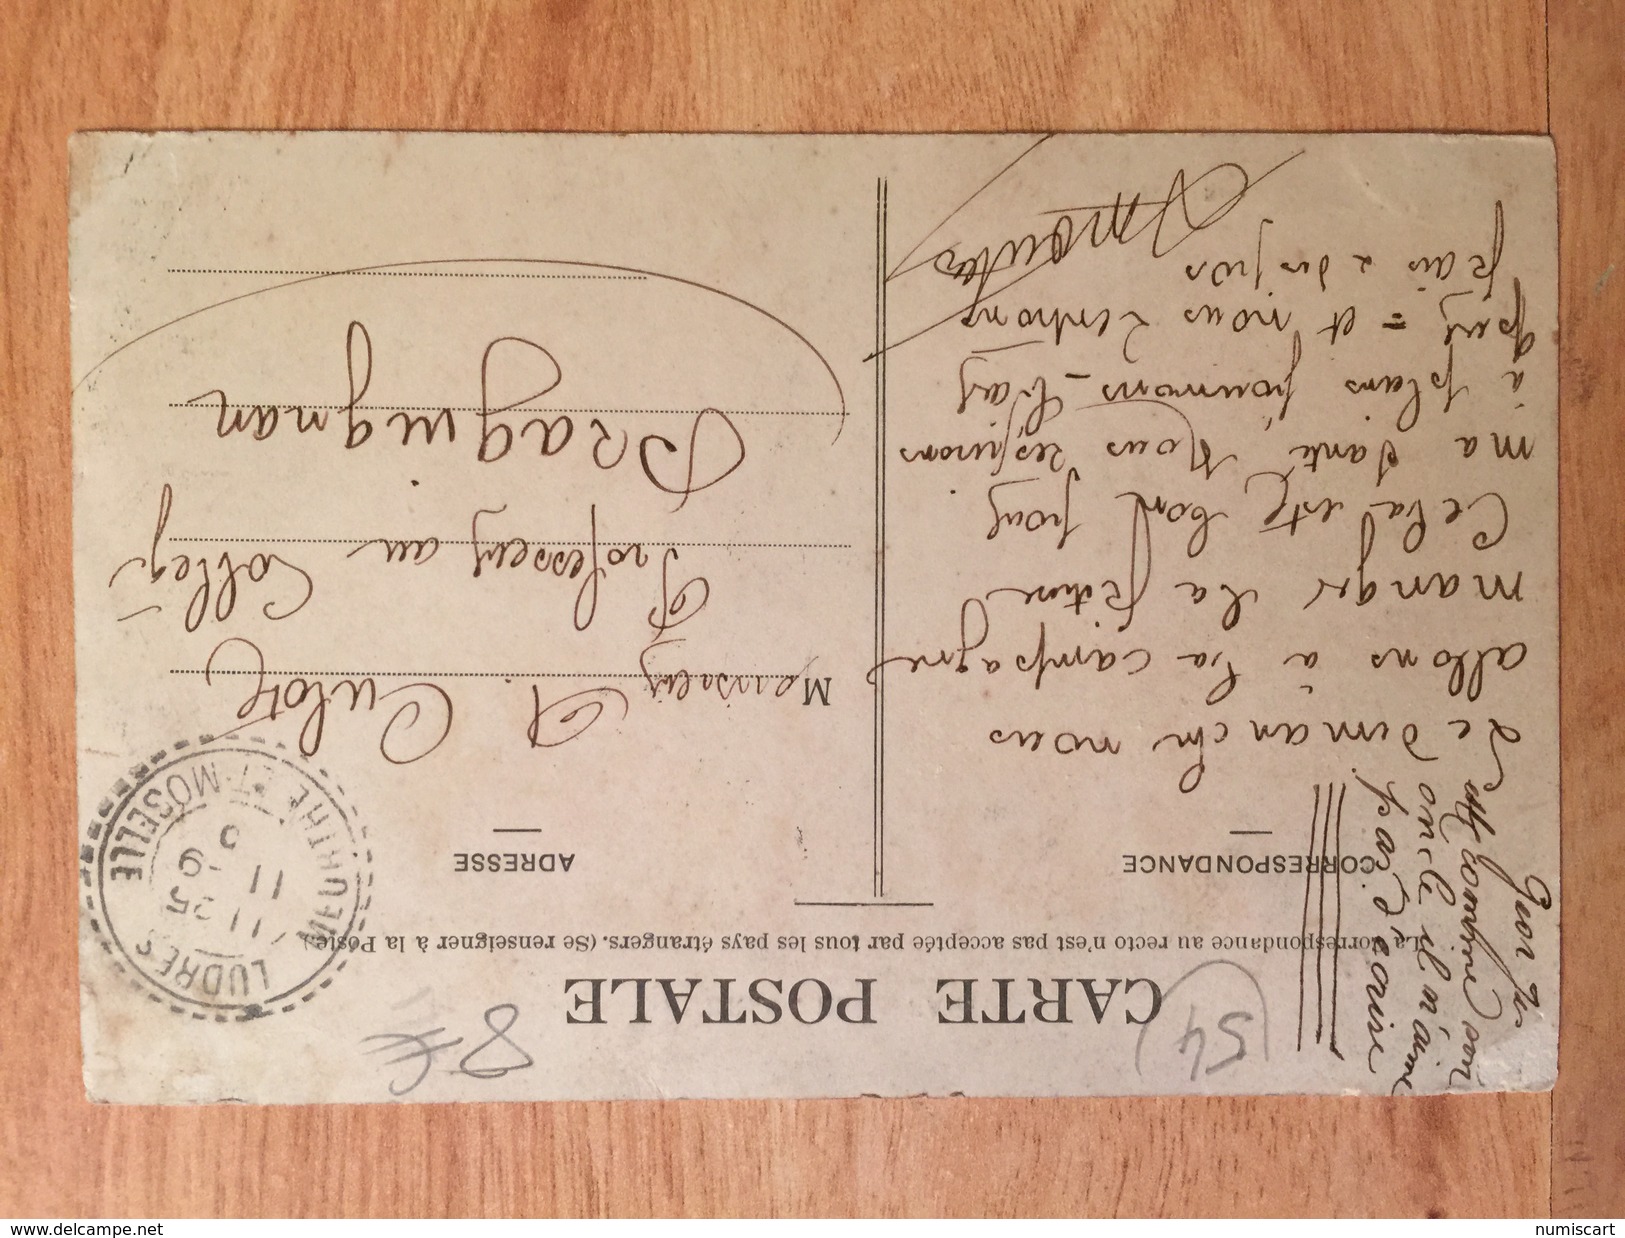 CARTE POSTALE
La Correspondance au recto n'est pas acceptée par tous les pays étrangers. (Se renseigner à la Poste)
CORRESPONDANCE
Le dimanch nous
allons à la campagne
manger la friture
Cela est bont pour
ma santé Nous respirons
à plains poumons - l'air
pur = et nous rentrons
frais
combien mon
oncle il n'aime
pas d'ecrire
ADRESSE
Monsieur A. Culot
Professeur au Collège
Draguignan
LUDRES
MEURTHE-ET-MOSELLE
11 25
11 -9
(54)
8 €
www.delcampe.net
numiscart